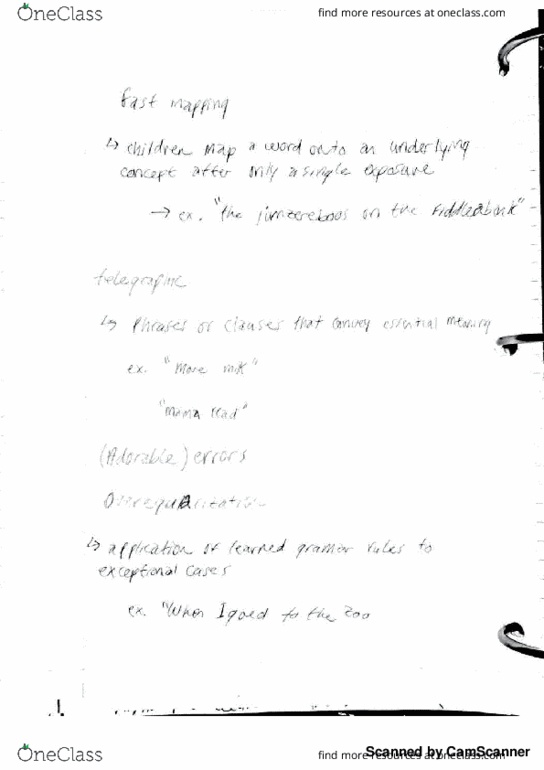 OneClass
find more resources at oneclass.com
fast mapping
↳ children map a word onto an underlying
concept after only a single exposure
→ ex. "the on the
telegraphic
↳ Phrases or clauses that convey essential meaning
ex. "More milk"
"mama read"
(Adorable) errors
↳ application of learned grammar rules to
exceptional cases
ex. "When I goed to the zoo
OneClass
find more resources at oneclass.com
Scanned by CamScanner